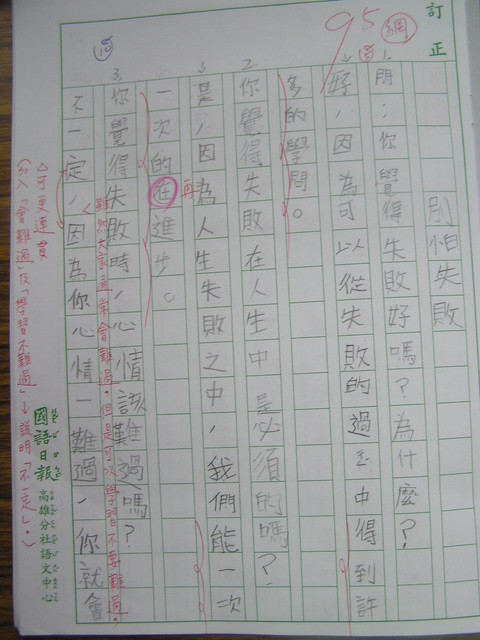 訂正
95
別怕失敗
1.問:你覺得失敗好嗎?為什麼?
好,因為可以從失敗的過至中得到許
多的學問。
2.你覺得失敗在人生中是必須的嗎?
3是,因為人生失敗之中,我們能一次
一次的在進步。
再
3.你覺得失敗時,心情該難過嗎?
雖然大家通常會難過,但是可以學習不要難過。
不一定,因為你心情一難過,你就會
△可更連貫
(加入「會難過」及「學習不難過」→說明「不一定」。)
國語日報高雄分社語文中心